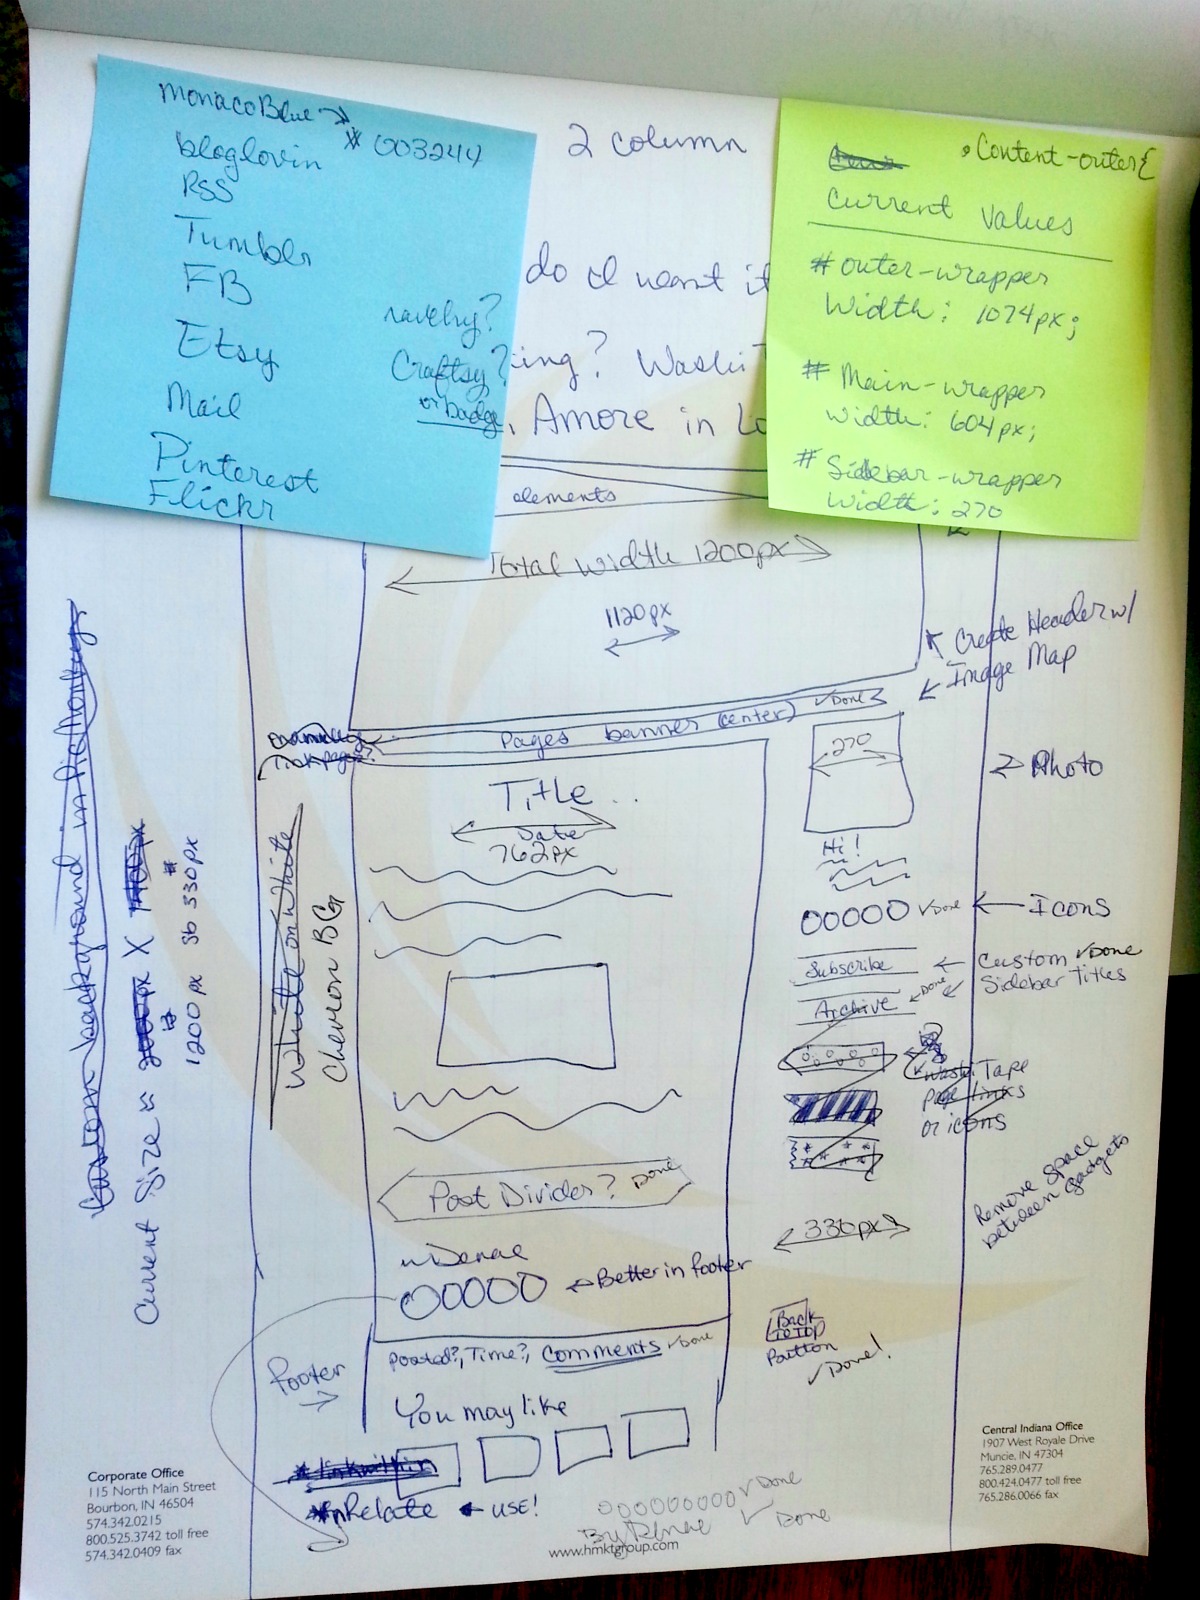 Monaco Blue →
# 003244
bloglovin
RSS
Tumblr
FB
Etsy
Mail
Pinterest
Flickr
ravelry?
Craftsy?
or badge
2 column
do I want it
ing? Washi
, Amore in Lo
elements
.Content-outer{
Current Values
# outer-wrapper
Width: 1074px;
# Main-wrapper
Width: 604px;
# Sidebar-wrapper
Width: 270
Total width 1200px
1120px
Create Header w/
Image Map
Pages banner (center) ✓Done
270
Photo
Title...
Date
762px
Hi!
OOOOO ✓Done ← Icons
Subscribe ← Custom ✓Done
Sidebar Titles
Archive ← Done
Washi Tape
page links
or icons
Custom background in
Current Size ≈ 2000px X 1400px
1200px sb 330px
White on White
Chevron BG
Post Divider? Done
330px
Remove space
between gadgets
OOOOO ← Better in footer
Back
to Top
Button
✓Done!
Posted?, Time?, Comments ✓Done
Footer
→
You may like
* linkwithin
*nRelate ← USE!
OOOOOOOOO ✓Done
By Renae ✓ Done
Corporate Office
115 North Main Street
Bourbon, IN 46504
574.342.0215
800.525.3742 toll free
574.342.0409 fax
www.hmktgroup.com
Central Indiana Office
1907 West Royale Drive
Muncie, IN 47304
765.289.0477
800.424.0477 toll free
765.286.0066 fax